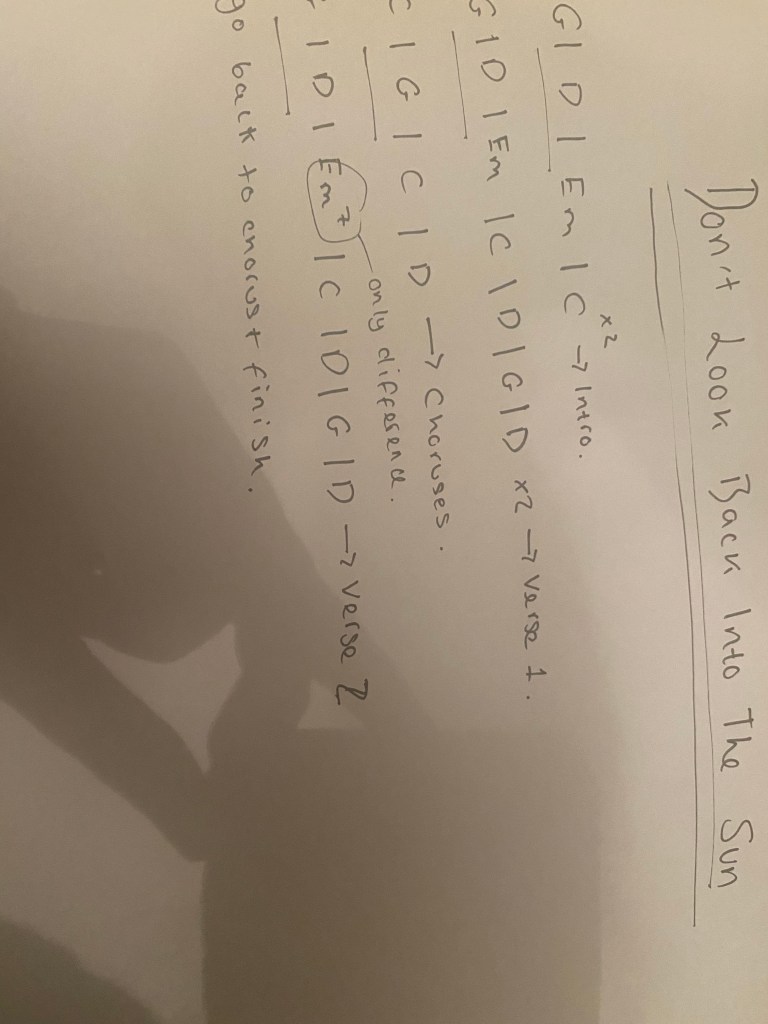 Don't Look Back Into The Sun
G | D | Em | C x2 → Intro.
G | D | Em | C | D | G | D x2 → verse 1.
C | G | C | D → choruses.
only difference.
G | D | Em7 | C | D | G | D → verse 2
go back to chorus + finish.